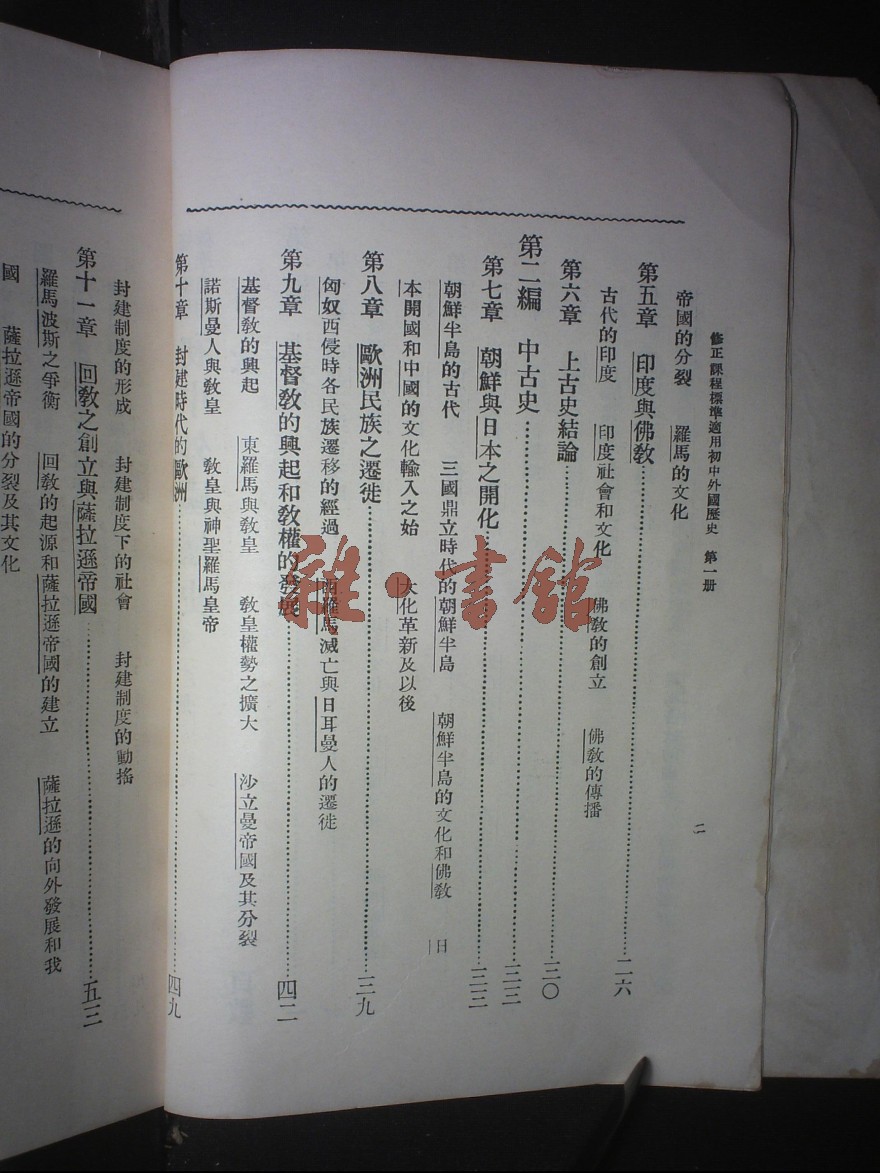 修正課程標準適用初中外國歷史　第一册
二
帝國的分裂　羅馬的文化
第五章　印度與佛教……二六
古代的印度　印度社會和文化　佛教的創立　佛教的傳播
第六章　上古史結論……三〇
第二編　中古史……三三
第七章　朝鮮與日本之開化……三三
朝鮮半島的古代　三國鼎立時代的朝鮮半島　朝鮮半島的文化和佛教　日
本開國和中國的文化輸入之始　大化革新及以後
第八章　歐洲民族之遷徙……三九
匈奴西侵時各民族遷移的經過　西羅馬滅亡與日耳曼人的遷徙
第九章　基督教的興起和教權的發展……四二
基督教的興起　東羅馬與教皇　教皇權勢之擴大　沙立曼帝國及其分裂
諾斯曼人與教皇　教皇與神聖羅馬皇帝
第十章　封建時代的歐洲……四九
封建制度的形成　封建制度下的社會　封建制度的動搖
第十一章　回教之創立與薩拉遜帝國……五三
羅馬波斯之爭衡　回教的起源和薩拉遜帝國的建立　薩拉遜的向外發展和我
國　薩拉遜帝國的分裂及其文化
雜·書館